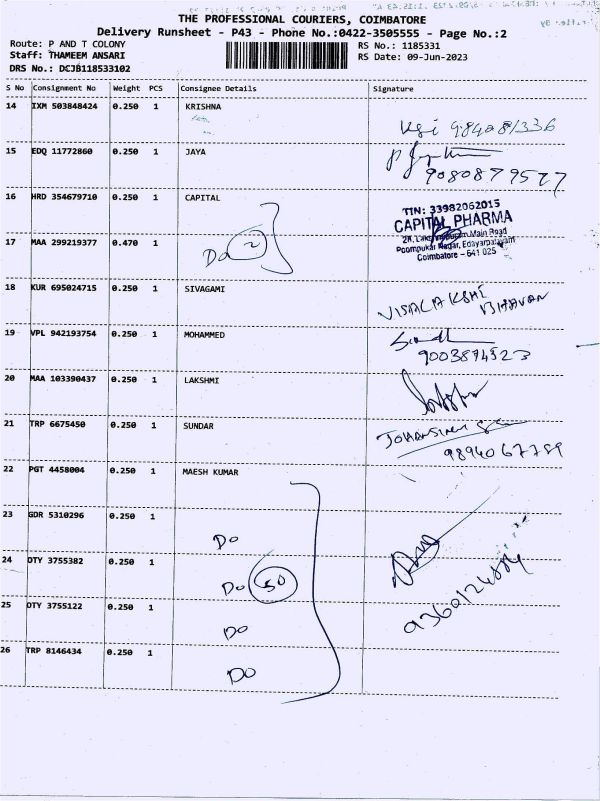 THE PROFESSIONAL COURIERS, COIMBATORE
Delivery Runsheet - P43 - Phone No.:0422-3505555 - Page No.:2
Route: P AND T COLONY
RS No.: 1185331
Staff: THAMEEM ANSARI
RS Date: 09-Jun-2023
DRS No.: DCJB118533102
S No Consignment No Weight PCS Consignee Details Signature
14 IXM 503848424 0.250 1 KRISHNA
984081336
15 EDQ 11772860 0.250 1 JAYA
9080879577
16 HRD 354679710 0.250 1 CAPITAL
TIN: 33982062015
CAPITAL PHARMA
Main Road
Poompukar Nagar, Edayarpalayam
Coimbatore - 641 025
17 MAA 299219377 0.470 1 Do 2
18 KUR 695024715 0.250 1 SIVAGAMI
VISALAKSHI
19 VPL 942193754 0.250 1 MOHAMMED
9003874523
20 MAA 103390437 0.250 1 LAKSHMI
21 TRP 6675450 0.250 1 SUNDAR
9894067789
22 PGT 4458004 0.250 1 MAESH KUMAR
23 GDR 5310296 0.250 1 Do
24 OTY 3755382 0.250 1 Do 50
25 OTY 3755122 0.250 1 Do
26 TRP 8146434 0.250 1 Do